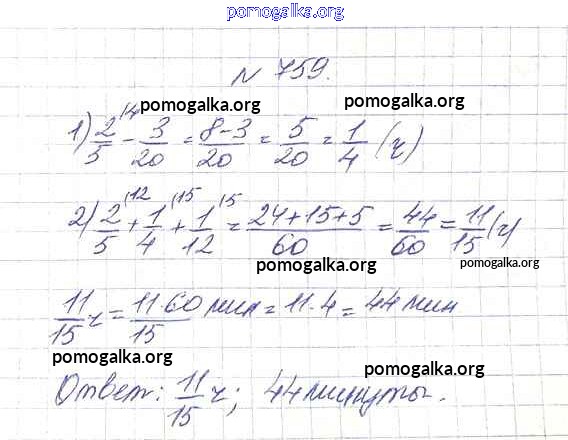 pomogalka.org
N 759.
pomogalka.org pomogalka.org
1) 2/5 (4 - 3/20 = 8-3/20 = 5/20 = 1/4 (ч)
2) 2/5 (12 + 1/4 (15 + 1/12 (5 = 24+15+5/60 = 44/60 = 11/15 (ч)
pomogalka.org pomogalka.org
11/15 ч = 11·60/15 мин = 11·4 = 44 мин
pomogalka.org pomogalka.org
Ответ: 11/15 ч; 44 минуты.
pomogalka.org